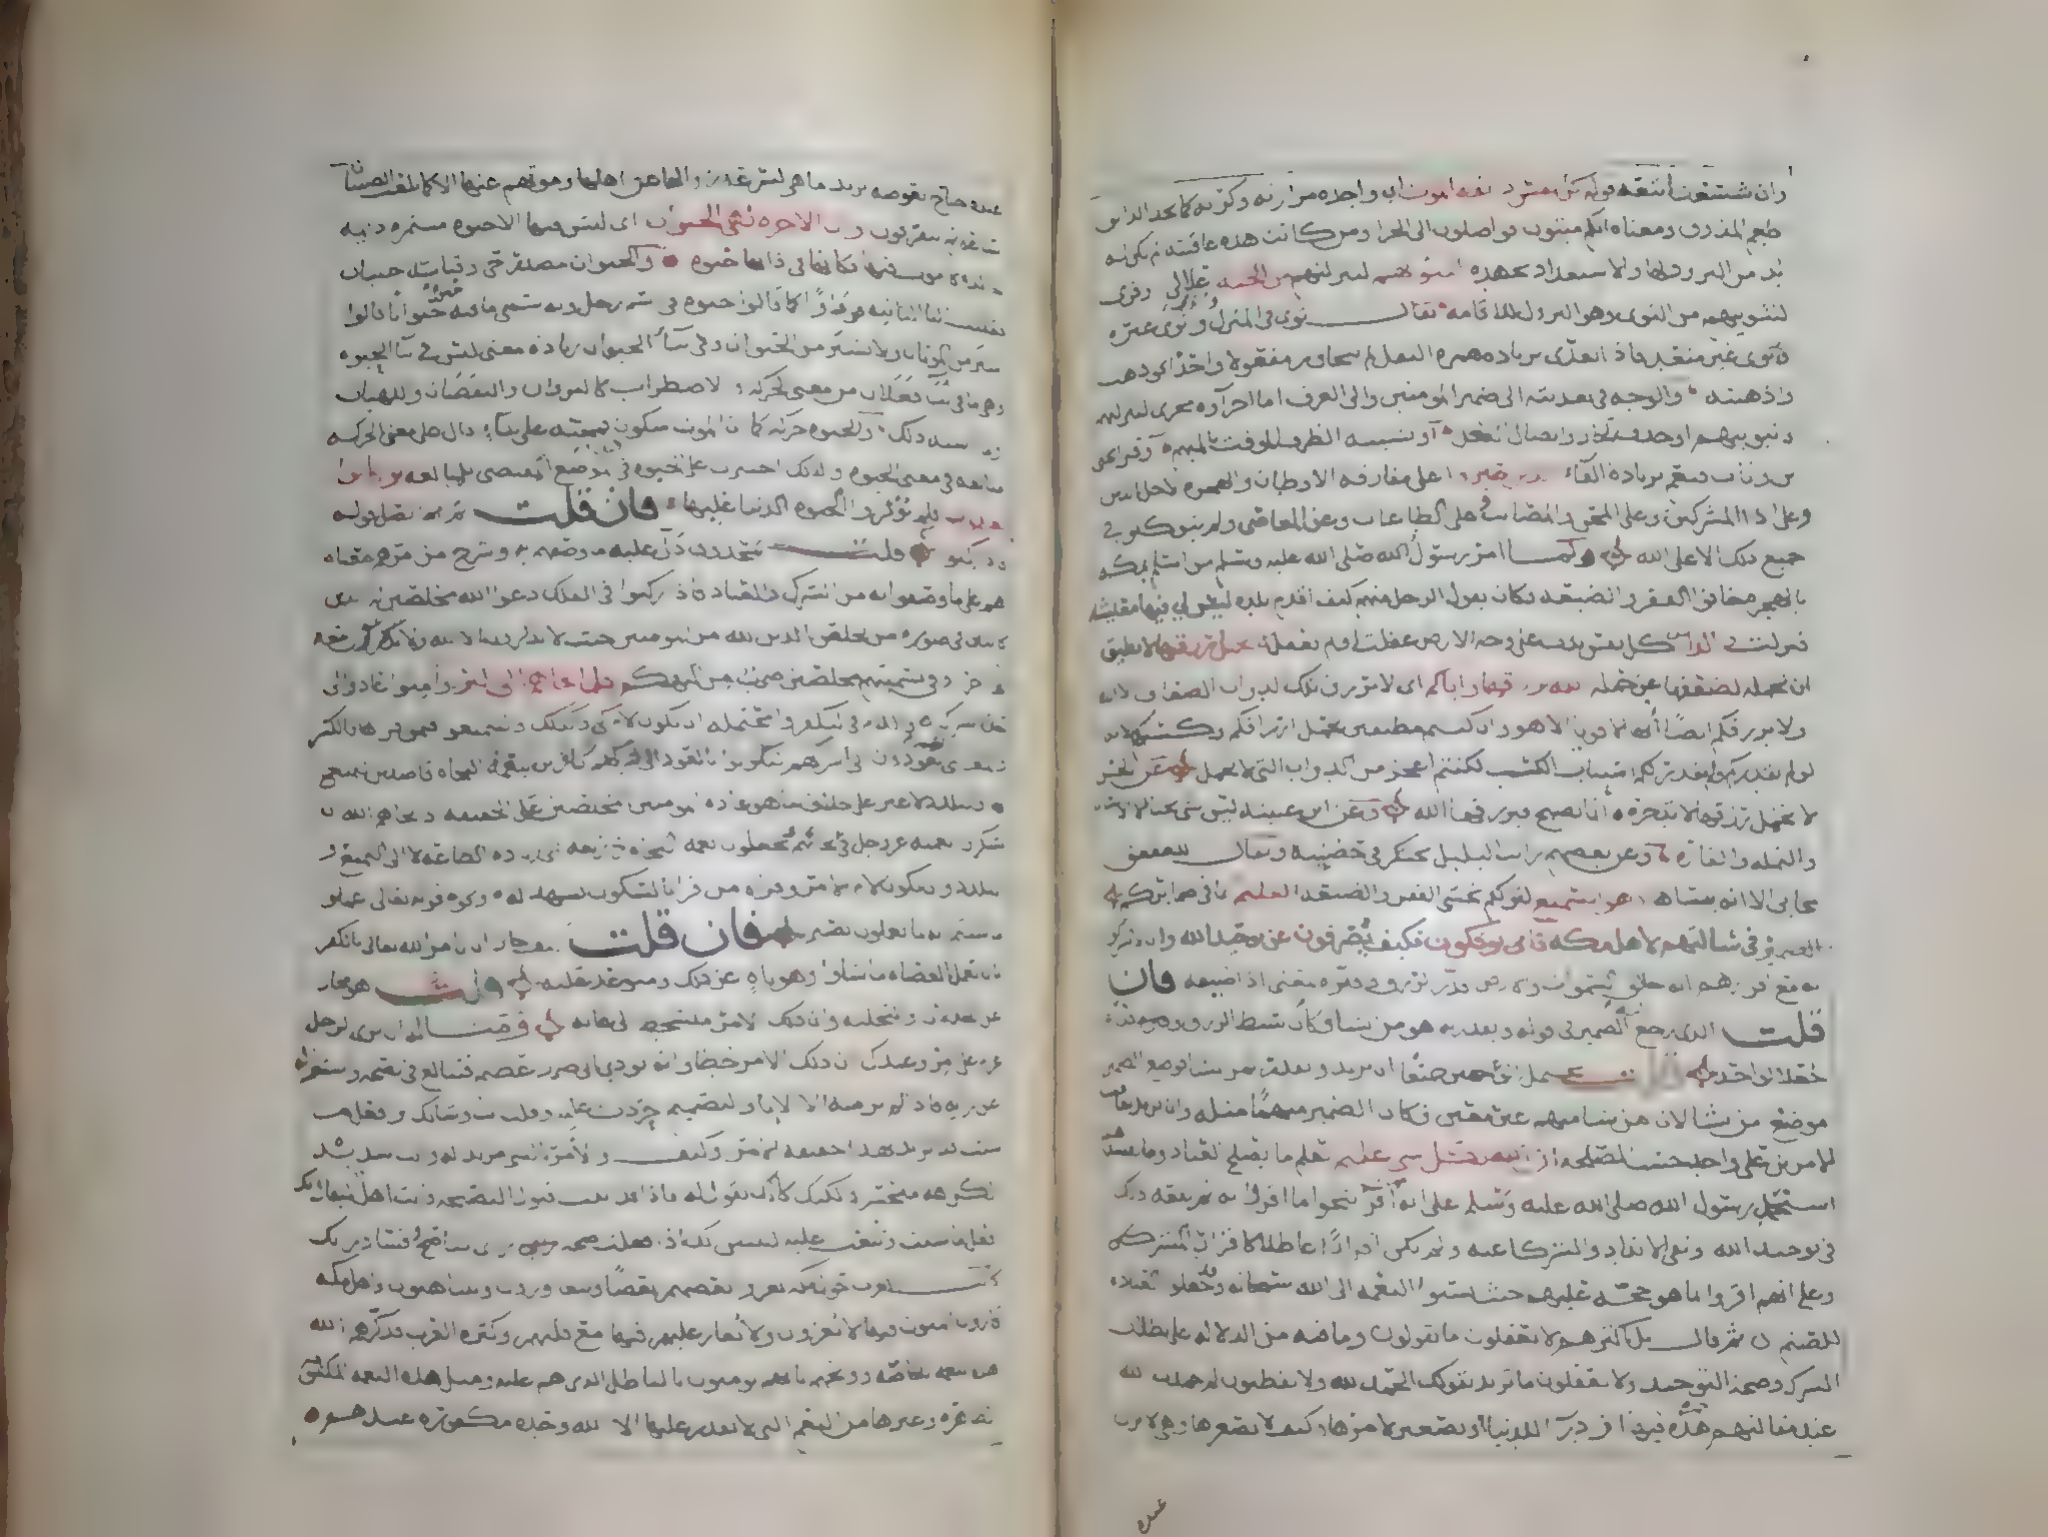 وان شسعت اتبعه قوله كل نفس ذائقة الموت اي واجدة مرارته وكربه كما يجد الذائق
طعم المذوق ومعناه انكم ميتون فواصلون الى الجزاء ومن كانت هذه عاقبته لم يكن له
بد من التزود لها والاستعداد بجهده لنبوئنهم لننزلنهم من الجنة علالي وقرئ
لنثوينهم من الثوى وهو النزول للاقامة يقال ثوى في المنزل واثوى غيره
وثوى غير متعد فاذا تعدى بزيادة همزة النقل لم يتجاوز مفعولا واحدا نحو ذهب
واذهبته والوجه في تعديته الى ضمير المؤمنين والى الغرف اما اجراؤه مجرى لننزلنهم
ونبوئنهم او حذف الجار وايصال الفعل او تشبيه الظرف الموقت بالمبهم وقرا يحيى
بن وثاب فنعم بزيادة الفاء الذين صبروا على مفارقة الاوطان والهجرة لاجل الدين
وعلى اذى المشركين وعلى المحن والمصائب وعلى الطاعات وعن المعاصي ولم يتوكلوا في
جميع ذلك الا على الله لما امر رسول الله صلى الله عليه وسلم من اسلم بمكة
بالهجرة خافوا الفقر والضيعة فكان يقول الرجل منهم كيف اقدم بلدة ليس لي فيها معيشة
فنزلت والدابة كل نفس دبت على وجه الارض عقلت او لم تعقل لا تحمل رزقها لا تطيق
ان تحمله لضعفها عن حمله الله يرزقها واياكم اي لا يرزق تلك الدواب الضعاف الا الله
ولا يرزقكم ايضا الا هو وان كنتم مطيقين لحمل ارزاقكم وكسبها لانه
لو لم يقدركم ولم يقدر لكم اسباب الكسب لكنتم اعجز من الدواب التي لا تحمل وعن الحسن
لا تحمل رزقها لا تدخره انما تصبح فيرزقها الله وعن ابن عيينة ليس شيء يخبا الا الانسان
والنملة والفارة وعن بعضهم رايت البلبل يحتكر في حضنيه ويقال للعقعق
مخابئ الا انه ينساها وهو السميع لقولكم نخشى الفقر والضيعة العليم بما في ضمائركم
الضمير في سالتهم لاهل مكة فانى يؤفكون فكيف يصرفون عن توحيد الله وان لا يشركوا
به مع اقرارهم بانه خالق السموات والارض قدر الرزق وقتره بمعنى اذا ضيقه فان
قلت الذي رجع اليه الضمير في قوله ويقدر له هو من يشاء فكان بسط الرزق وقدره
جعلا لواحد قلت يحتمل الوجهين جميعا ان يريد ويقدر لمن يشاء فوضع الضمير
موضع من يشاء لان من يشاء مبهم غير معين فكان الضمير مبهما مثله وان يريد تعاقب
الامرين على واحد حسب المصلحة ان الله بكل شيء عليم يعلم ما يصلح العباد وما يفسدهم
استحمد رسول الله صلى الله عليه وسلم على انه ممن اقر بنحو ما اقروا به ثم نفعه ذلك
في توحيد الله ونفي الانداد والشركاء عنه ولم يكن اقرارا عاطلا كاقرار المشركين
وعلى انهم اقروا بما هو حجة عليهم حيث نسبوا النعمة الى الله سبحانه وجعلوا العبادة
للصنم ثم قال بل اكثرهم لا يعقلون ما يقولون وما فيه من الدلالة على بطلان
الشرك وصحة التوحيد ولا يعقلون ما تريد بقولك الحمد لله ولا يفطنون لم حمدت الله
عند مقالتهم هذه فيها ازدراء للدنيا وتصغير لامرها وكيف لا يصغرها وهي لا تزن
عنده
عنده جناح بعوضة يريد ما هي لسرعة زوالها عن اهلها وموتهم عنها الا كما يلعب الصبيان
ساعة ثم يتفرقون وان الدار الاخرة لهي الحيوان اي ليس فيها الا حيوة مستمرة دائمة
خالدة لا موت فيها فكانها في ذاتها حيوة والحيوان مصدر حي وقياسه حييان
فقلبت الياء الثانية واوا كما قالوا حيوة في اسم رجل وبه سمي ما فيه حيوة حيوانا قالوا
اشتر من الموتان ولا تشتر من الحيوان وفي بناء الحيوان زيادة معنى ليس في بناء الحيوة
وهي ما في بناء فعلان من معنى الحركة والاضطراب كالنزوان والنغضان واللهبان
وما اشبه ذلك والحيوة حركة كما ان الموت سكون فمجيئه على بناء دال على معنى الحركة
مبالغة في معنى الحيوة ولذلك اختيرت على الحيوة في هذا الموضع المقتضي للمبالغة لو كانوا
يعلمون فلم يؤثروا الحيوة الدنيا عليها فان قلت بم اتصل قوله
فاذا ركبوا قلت بمحذوف دل عليه ما وصفهم به وشرح من امرهم معناه
هم على ما وصفوا به من الشرك والعناد فاذا ركبوا في الفلك دعوا الله مخلصين له الدين
كائنين في صورة من يخلص الدين لله من المؤمنين حيث لا يذكرون الا الله ولا يدعون معه
الها اخر وفي تسميتهم مخلصين ضرب من التهكم فلما نجاهم الى البر وامنوا عادوا الى
حال الشرك واللام في ليكفروا محتملة ان تكون لام كي وكذلك وليتمتعوا فيمن قرأها بالكسر
والمعنى انهم يعودون الى شركهم ليكونوا بالعود الى شركهم كافرين بنعمة النجاة قاصدين التمتع
بها والتلذذ لا غير على خلاف ما هو عادة المؤمنين المخلصين على الحقيقة اذا انجاهم الله ان
يشكروا نعمة الله عز وجل في انجائهم ويجعلوا نعمة النجاة ذريعة الى ازدياد الطاعة لا الى التمتع و
التلذذ وان تكون لام الامر وقراءة من قرأ وليتمتعوا بالسكون تشهد له ونحوه قوله تعالى اعملوا
ما شئتم انه بما تعملون بصير فان قلت كيف جاز ان يامر الله تعالى بالكفر
وبان يعمل العصاة ما شاءوا وهو ناه عن ذلك ومتوعد عليه قلت هو مجاز
عن الخذلان والتخلية وان ذلك الامر متسخط الى غاية ومثاله ان ترى الرجل
قد عزم على امر وعندك ان ذلك الامر خطا وانه يؤدي الى ضرر عظيم فتبالغ في نصحه واستنزاله
عن رايه فاذا لم تر منه الا الاباء والتصميم حردت عليه وقلت انت وشانك وافعل ما
شئت فلا تريد بهذا حقيقة الامر وكيف والامر بالشيء مريد له وانت شديد
الكراهة متحسر ولكنك كانك تقول له فاذ قد ابيت قبول النصيحة فانت اهل ليقال لك
افعل ما شئت وتبعث عليه ليتبين لك اذا فعلت صحة راي الناصح وفساد رايك
كانت العرب حول مكة يغزو بعضهم بعضا ويتغاورون ويتناهبون واهل مكة
قارون امنون فيها لا يغزون ولا يغار عليهم مع قلتهم وكثرة العرب فذكرهم الله
هذه النعمة الخاصة ووبخهم بانهم يؤمنون بالباطل الذي هم عليه ومثل هذه النعمة المكشوفة
الظاهرة وغيرها من النعم التي لا يقدر عليها الا الله وحده مكفورة عندهم